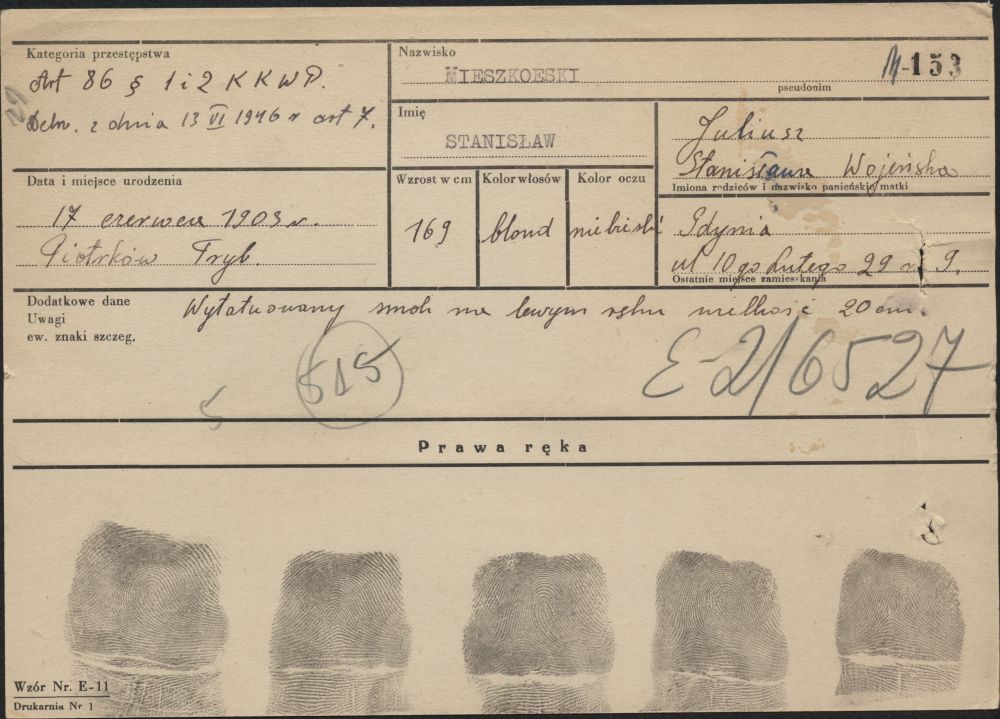 Kategoria przestępstwa
Art 86 § 1 i 2 K K W P.
Dekr. z dnia 13 VI 1946 r art 7.
Nazwisko
MIESZKOESKI
M-153
pseudonim
Imię
STANISŁAW
Juliusz
Stanisława Wojeńska
Imiona rodziców i nazwisko panieńskie matki
Data i miejsce urodzenia
17 czerwca 1903 r.
Piotrków Tryb.
Wzrost w cm
169
Kolor włosów
blond
Kolor oczu
niebieski
Gdynia
ul 10go Lutego 29 m 9.
Ostatnie miejsce zamieszkania
Dodatkowe dane
Uwagi
ew. znaki szczeg.
Wytatuowany smok na lewym ręku wielkość 20 cm.
5
515
E-2/6527
Prawa ręka
Wzór Nr. E-11
Drukarnia Nr 1